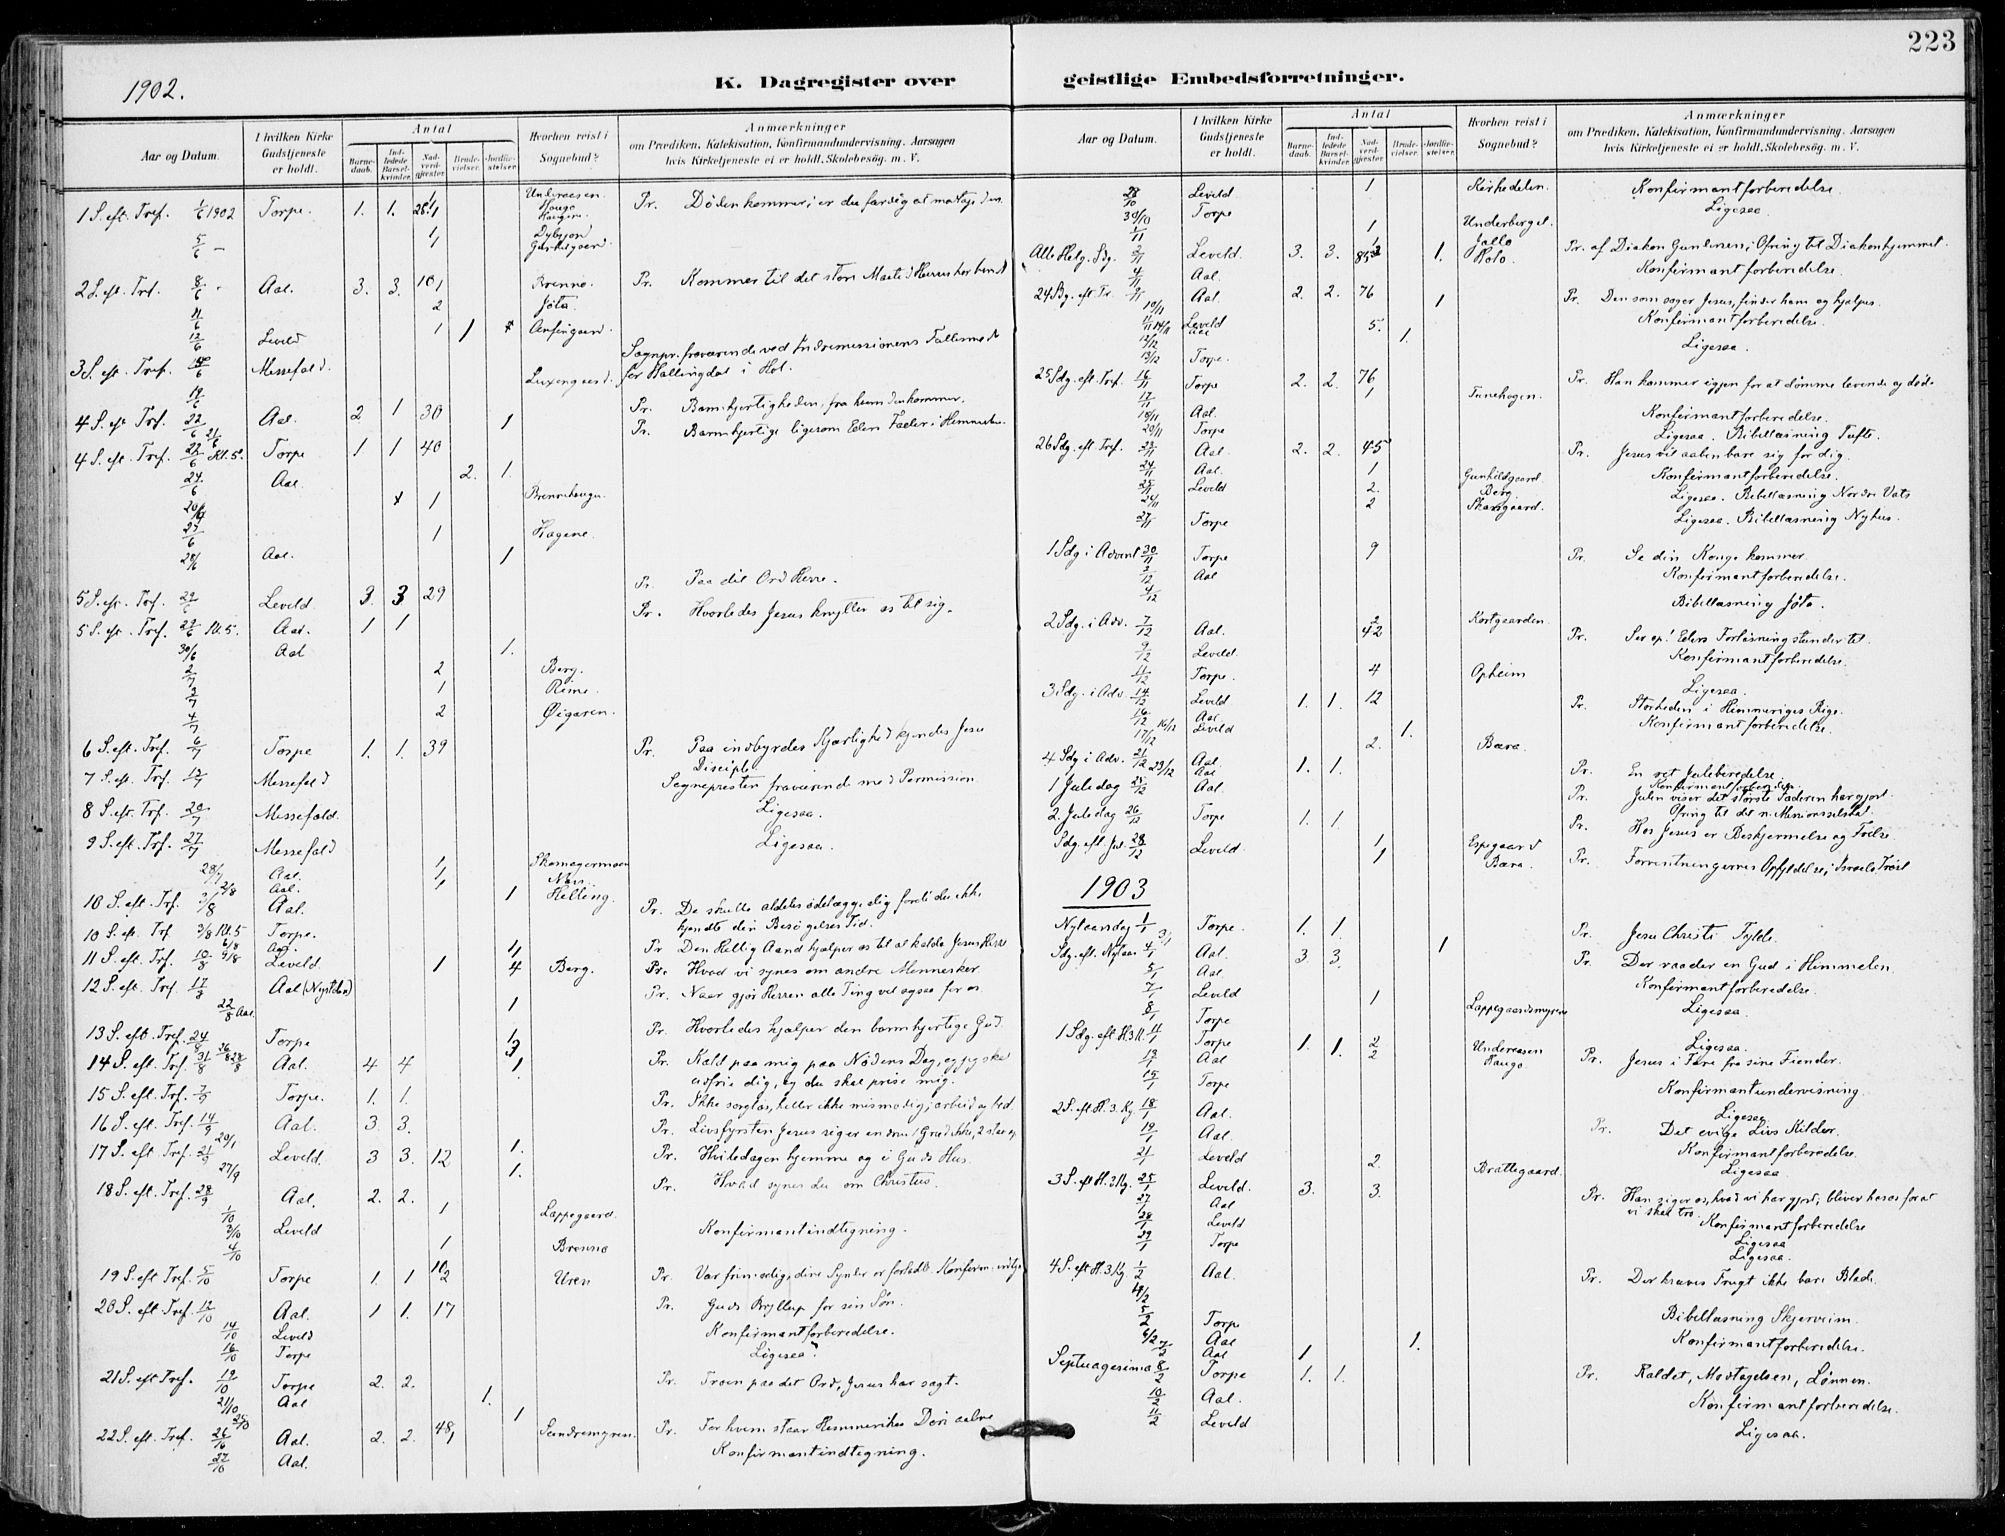 223
1902.
K. Dagregister over geistlige Embedsforretninger.
Aar og Datum. I hvilken Kirke Gudstjeneste er holdt. Antal Barnedaab. Indledede Barselkvinder. Nadverdgjester Brudevielser. Jordfæstelser. Hvorhen reist i Sognebud? Anmærkninger om Prædiken, Katekisation, Konfirmandundervisning, Aarsagen hvis Kirketjeneste ei er holdt, Skolebesøg. m. V.
1 S. eft. Tref. 1/6 1902 Torpe. 1. 1. Underaasen Pr. Døden kommer; er du færdig at modtage den.
5/6 –
2 S. eft. Tref. 8/6 Aal. 3. 3. 10 1 Brenno. Pr. Kommer til det store Maaltid Herren har beredt
2 Jøta.
11/6 1 1 Anfingaard.
12/6 Leveld
3 S. eft. Tref. 15/6 Messefald. Sognepr. fraværende ved Indremissionens Fællesmøde for Hallingdal i Hol.
19/6 Luxengaard.
4 S. eft Tref. 22/6 Aal. 2 1 30 1 Pr. Barmhjertigheden, fra hvem den kommer.
4 S. eft. Tref. 22/6 Kl. 5. Torpe 1 1 40 Pr. Barmhjertige ligesom Eders Fader i Himmelen.
24/6 Aal 2. 1.
1 Brennehaugn.
27/6 1 Hagene.
28/6 Aal. 1
5 S. eft. Tref. 29/6 Leveld. 3. 3 29 Pr. Paa dit Ord Herre.
5 S. eft. Tref. 29/6 Kl. 5. Aal. 1 1 Pr. Hvorledes Jesus knytter os til sig.
30/6 Aal 1.
2/7 2 Berg.
2/7 1 Rime.
4/7 2 Øigaren.
6 S. eft. Tref. 6/7 Torpe 1. 1. 39 Pr. Paa indbyrdes Kjærlighed kjendes Jesu Disciple
7 S. eft. Tref. 13/7 Messefald Sognepresten fraværende med Permission.
8 S. eft. Tref. 20/7 Messefald. Ligesaa.
9 S. eft. Tref. 27/7 Messefald Ligesaa.
28/7 Aal. 1 Skomagermoen
2/8 Aal. 1
10 S. eft. Tref. 3/8 Aal. 1 Helling. Pr. De skulle aldeles ødelægge dig fordi du ikke kjendte din Besøgelses Tid.
10 S. eft. Tref. 3/8 Kl. 5 Torpe. Pr. Den Hellig Aand hjælper os til at kalde Jesus Herre
6/8 Aal.
11 S. eft. Tref. 10/8 9/8 Leveld 1 4 Berg. Pr. Hvad vi synes om andre Mennesker
12 S. eft. Tref. 17/8 Aal (Nystølen) Pr. Naar gjør Herren alle Ting vel ogsaa for os.
22/8 Aal. 1
13 S. eft. Tref. 24/8 Torpe Pr. Hvorledes hjælper den barmhjertige Gud.
14 S. eft. Tref. 31/8 Aal. 4 4 1 Pr. Kald paa mig paa Nødens Dag, og jeg skal udfrie dig, og du skal prise mig.
15 S. eft. Tref. 7/9 Torpe. 1. 1. Pr. Ikke sorgløs, heller ikke mismodig; arbeid og bed.
16 S. eft. Tref. 14/9 Aal. 3. 3. Pr. Livsfyrsten Jesus siger endnu: 1 Græd ikke, 2 staa op
17 S. eft. Tref. 21/9 Leveld. 3 3. 12 1. Pr. Hviledagen hjemme og i Guds Hus.
27/9 1.
18 S. eft. Tref. 28/9 Aal. 2. 2. Pr. Hvad synes du om Christus.
1/10 1 Lappegaard.
3/10 Leveld Konfirmantindtegning.
4/10 1 Brenno
19 S. eft. Tref. 5/10 Torpe 1. 1 10 2 Uren Pr. Vær frimodig, dine Synder er forladte. Konfirm. indtgn.
20 S. eft. Tref. 12/10 Aal. 1 1. 17 Pr. Guds Bryllup for sin Søn.
14/10 Leveld Konfirmantforberedelse.
16/10 Torpe Ligesaa.
21 S. eft Tref. 19/10 Torpe 2. 2. Pr. Troen paa det Ord, Jesus har sagt.
21/10 Aal 1.
25/10 1
22 S. eft. Tref. 26/10 Aal. 2. 2. 48 1 Søndremyren. Pr. For hvem staar Himmerikes Dør aaben
27/10 Aal. Konfirmantindtegning.
Aar og Datum. I hvilken Kirke Gudstjeneste er holdt. Antal Barnedaab. Indledede Barselkvinder. Nadverdgjester Brudevielser. Jordfæstelser. Hvorhen reist i Sognebud? Anmærkninger om Prædiken, Katekisation, Konfirmandundervisning, Aarsagen hvis Kirketjeneste ei er holdt, Skolebesøg. m. V.
28/10 Leveld 1 Kirkedelen. Konfirmantforberedelse
30/10 Torpe Ligesaa
1/11 1 Underberget.
Alle Helg. Sdg. 2/11 Leveld. 3. 3. 1. Pr. af Diakon Gundersen; Ofring til Diakonhjemmet.
4/11 Aal. Konfirmantforberedelse.
24 Sdg. eft. Tr. 9/11 Aal. 2. 2. 76 Pr. Den som søger Jesus, finder ham og hjælpes.
10/11 1
11/11 Leveld 5. Konfirmantforberedelse.
14/11 Aal 1.
13/12 Torpe. Ligesaa.
25 Sdg. eft. Tref. 16/11 Torpe 2. 2. 76 Pr. Han kommer igjen for at dømme levende og døde
17/11 1 Tunehogen.
18/11 Aal. Konfirmantforberedelse.
20/11 Torpe Ligesaa. Bibellæsning Tufte.
26 Sdg. eft. Tref. 23/11 Aal 2. 2. 45 Pr. Jesus vil aabenbare sig for dig.
24/11 Aal. 1 Gunhildgaard. Konfirmantforberedelse.
25/11 Leveld 2. Berg. Ligesaa. Bibellæsning Nordre Vats
2 Skarsgaard.
27/11 Torpe Ligesaa. Bibellæsning Nyhus.
1 Sdg i Advent 30/11 Torpe 9 Pr. Se din Konge kommer
2/12 Aal Konfirmantforberedelse.
4/12 Bibellæsning Jøta.
2 Sdg. i Adv. 7/12 Aal. 42 Kortgaarden. Pr. Ser op! Eders Forløsning stunder til.
9/12 Leveld. Konfirmantforberedelse.
11/12 Torpe. 4 Opheim Ligesaa.
3 Sdg. i Adv. 14/12 Leveld 1. 1. 12 Pr. Storheden i Himmeriges Rige.
16/12 Aal. Konfirmantforberedelse.
17/12 Leveld 1.
2. Bæra.
4 Sdg i Adv. 21/12 Aal. 1. 1. Pr. En ret Juleberedelse.
23/12 Aal Konfirmantforberedelse.
1 Juledag 25/12 Aal. Pr. Julen viser det største Faderen har gjort. Ofring til det n. Missionsselskab.
2. Juledag 26/12 Torpe 1. 1. Pr. Hos Jesus er Beskjermelse og Frelse.
Sdg. eft. Jul. 28/12 Leveld. 1 Espegaard Pr. Forventningernes Opfyldelse; Israels Trøst
1 Bæra
1903
Nytaarsdag 1/1 Torpe 1. 1. Pr. Jesu Christi Fylde.
3/1 1
Sdg. eft. Nytaar 4/1 Aal. 3 3. Pr. Der raader en Gud i Himmelen.
5/1 Aal. Konfirmantforberedelse.
7/1 Leveld 1 Lappegaardsmyren Ligesaa.
8/1 Torpe Ligesaa.
1 Sdg. eft H. 3 K. 11/1 Torpe 1. 1. 2 Underaasen Pr. Jesus i Fare fra sine Fiender.
13/1 Aal 2 Haugo Konfirmantundervisning.
15/1 Torpe Ligesaa
2 S. eft H. 3. Kg. 18/1 Aal. Pr. Det evige Livs Kilder.
19/1 Aal. Konfirmantforberedelse.
21/1 Leveld 2. Brattegaard. Ligesaa.
3 S. eft H. 3 Kg. 25/1 Leveld. 3. 3. Pr. Han siger os, hvad vi har gjort; bliver hos os for at vi skal tro.
27/1 Aal Konfirmantforberedelse
28/1 Leveld Ligesaa
29/1 Torpe Ligesaa.
4 S. eft H. 3 Kg 1/2 Aal. Pr. Der kræves Frugt ikke bare Blade.
4/2 Bibellæsning Skjerveim.
5/2 Torpe Konfirmantforberedelse.
6/2 Aal 1.
7/2 Aal 1
Septuagesima 8/2 Torpe 1. 1. Pr. Kaldet, Modtagelsen, Lønnen.
10/2 Aal. Konfirmantforberedelse.
11/2 Leveld Ligesaa.